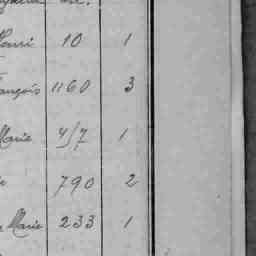 10 1
1160 3
Marie 4/7 1
790 2
Marie 233 1